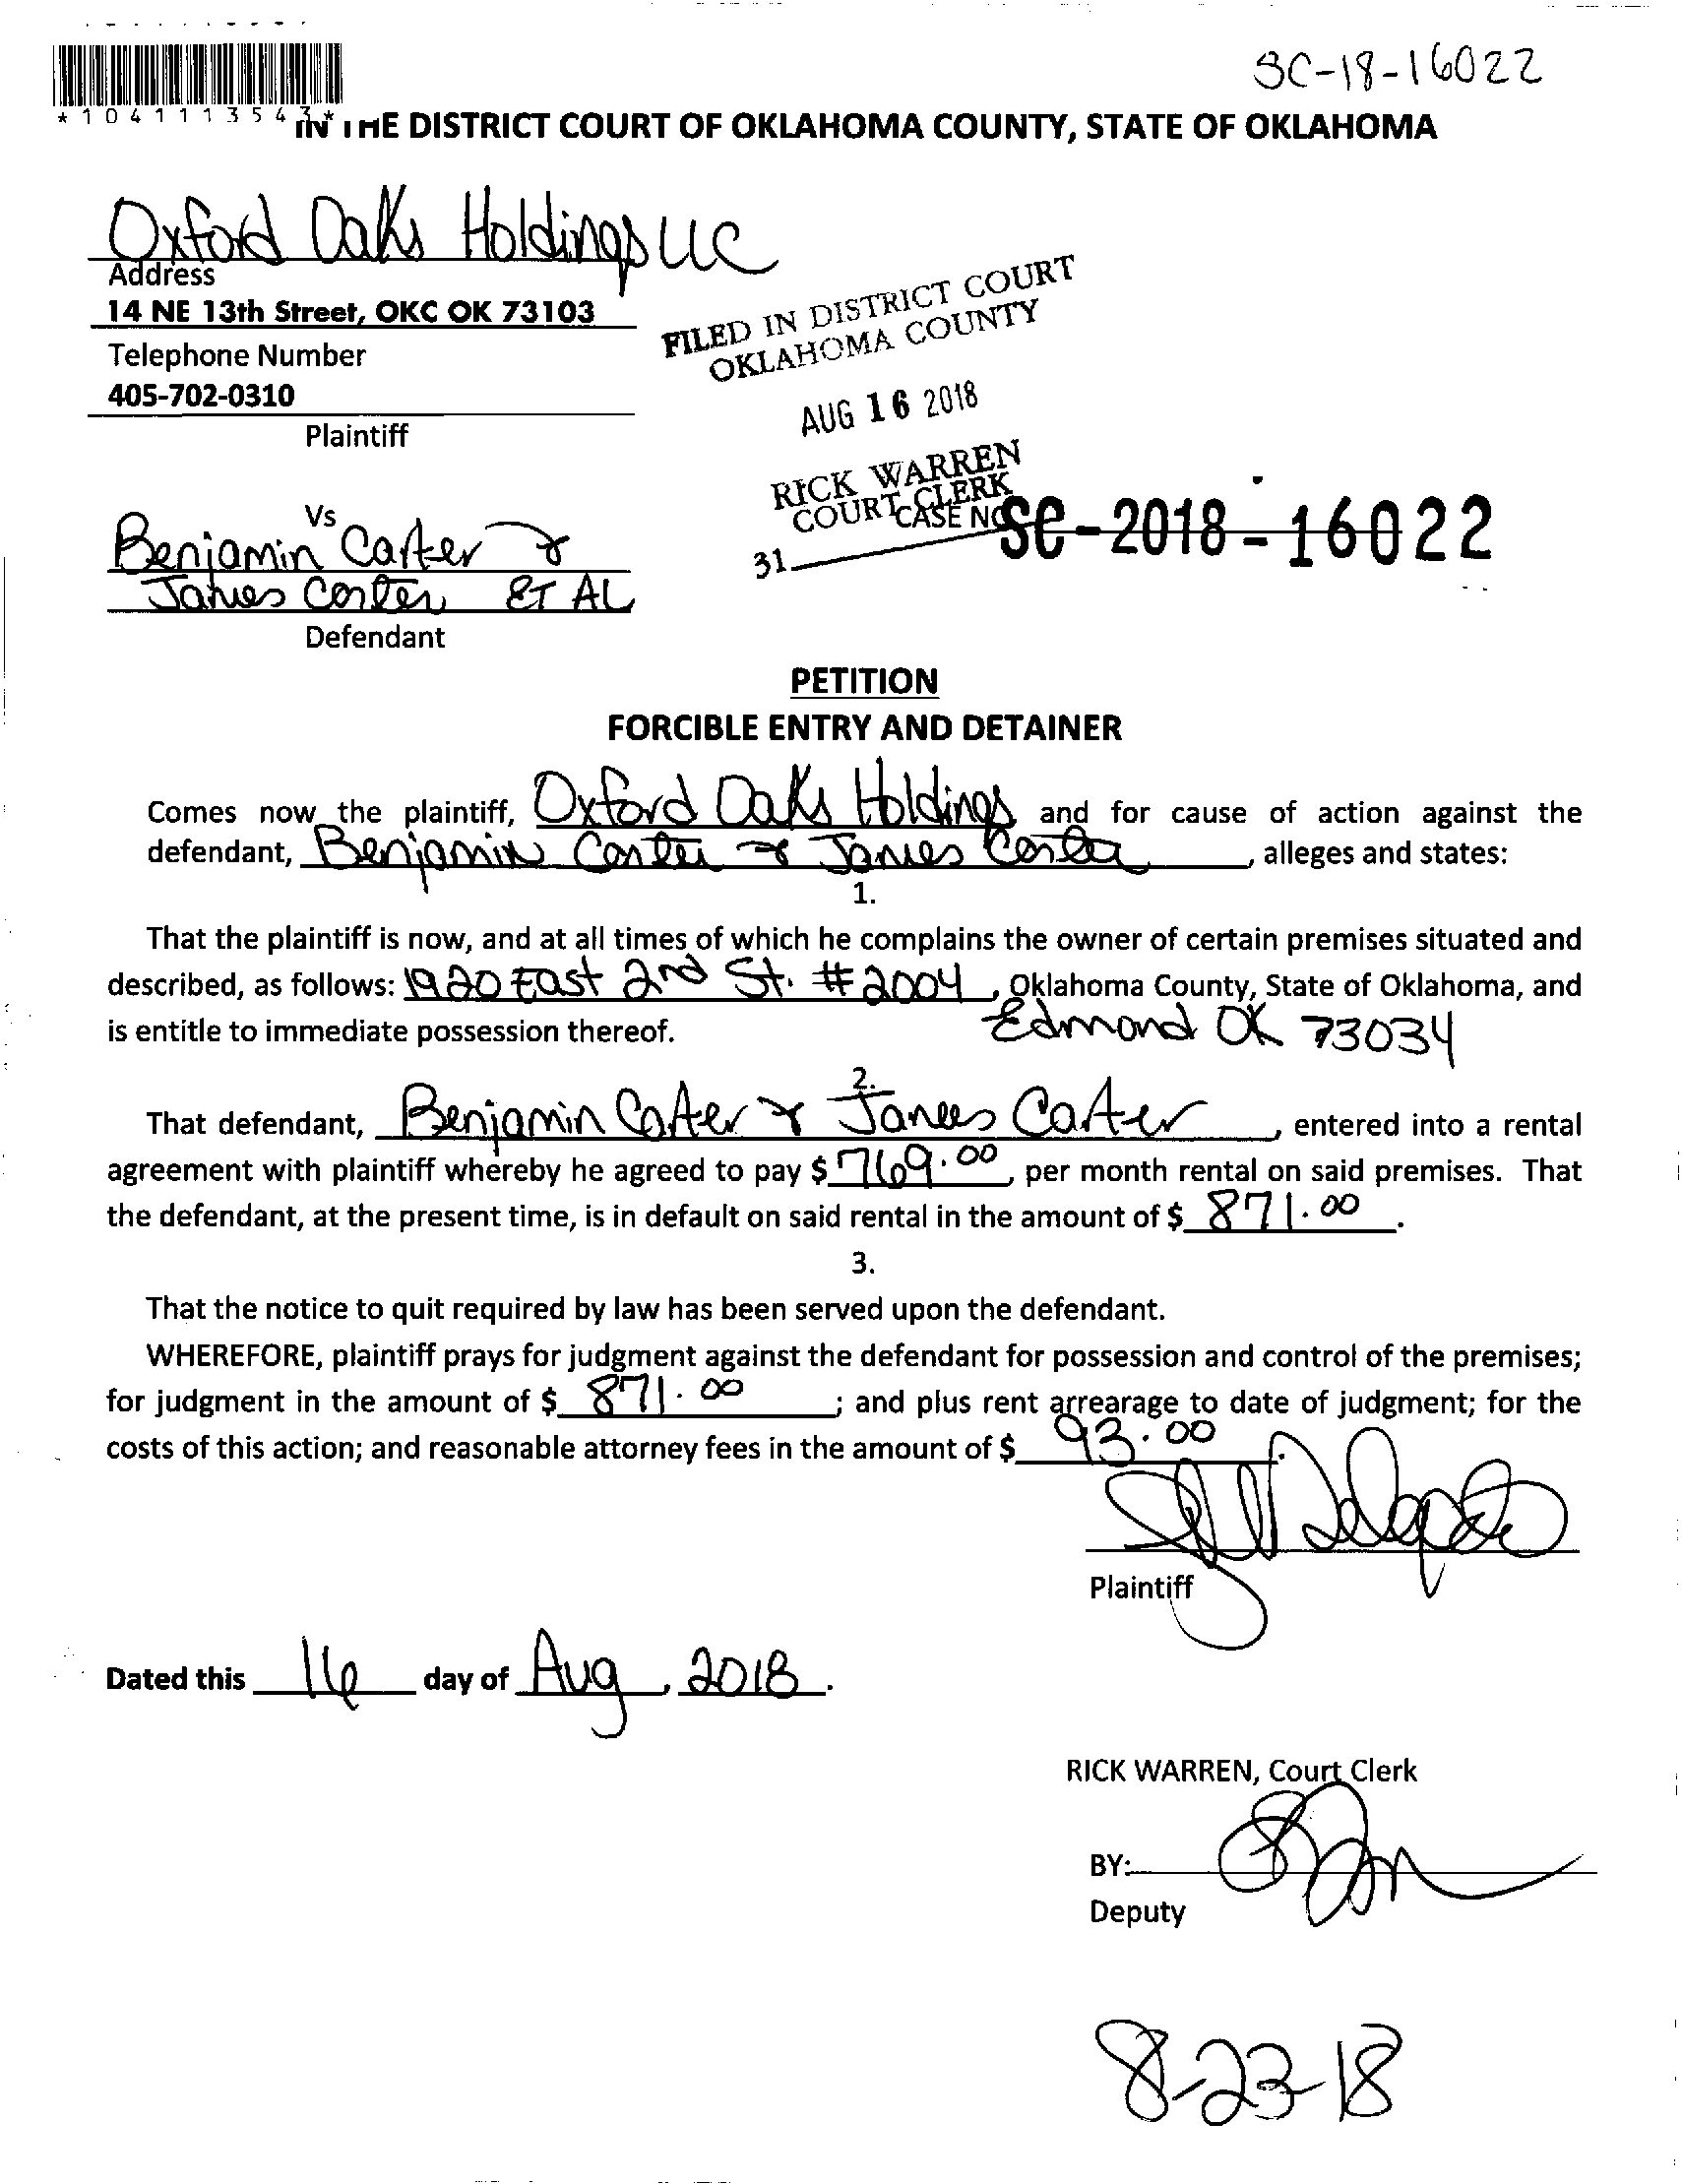 SC-18-16022
*1041113543*
IN THE DISTRICT COURT OF OKLAHOMA COUNTY, STATE OF OKLAHOMA
Oxford Oaks Holdings LLC
Address
14 NE 13th Street, OKC OK 73103
Telephone Number
405-702-0310
Plaintiff
FILED IN DISTRICT COURT
OKLAHOMA COUNTY
AUG 16 2018
RICK WARREN
COURT CLERK
31
CASE NO
SC-2018-16022
Vs
Benjamin Carter &
James Carter ET AL
Defendant
PETITION
FORCIBLE ENTRY AND DETAINER
Comes now the plaintiff, Oxford Oaks Holdings and for cause of action against the
defendant, Benjamin Carter & James Carter, alleges and states:
1.
That the plaintiff is now, and at all times of which he complains the owner of certain premises situated and
described, as follows: 1920 East 2nd St. #2004, Oklahoma County, State of Oklahoma, and
is entitle to immediate possession thereof. Edmond OK 73034
2.
That defendant, Benjamin Carter & James Carter, entered into a rental
agreement with plaintiff whereby he agreed to pay $ 769.00, per month rental on said premises. That
the defendant, at the present time, is in default on said rental in the amount of $ 871.00.
3.
That the notice to quit required by law has been served upon the defendant.
WHEREFORE, plaintiff prays for judgment against the defendant for possession and control of the premises;
for judgment in the amount of $ 871.00; and plus rent arrearage to date of judgment; for the
costs of this action; and reasonable attorney fees in the amount of $ 93.00.
Plaintiff
Dated this 16 day of Aug, 2018.
RICK WARREN, Court Clerk
BY:
Deputy
8-23-18